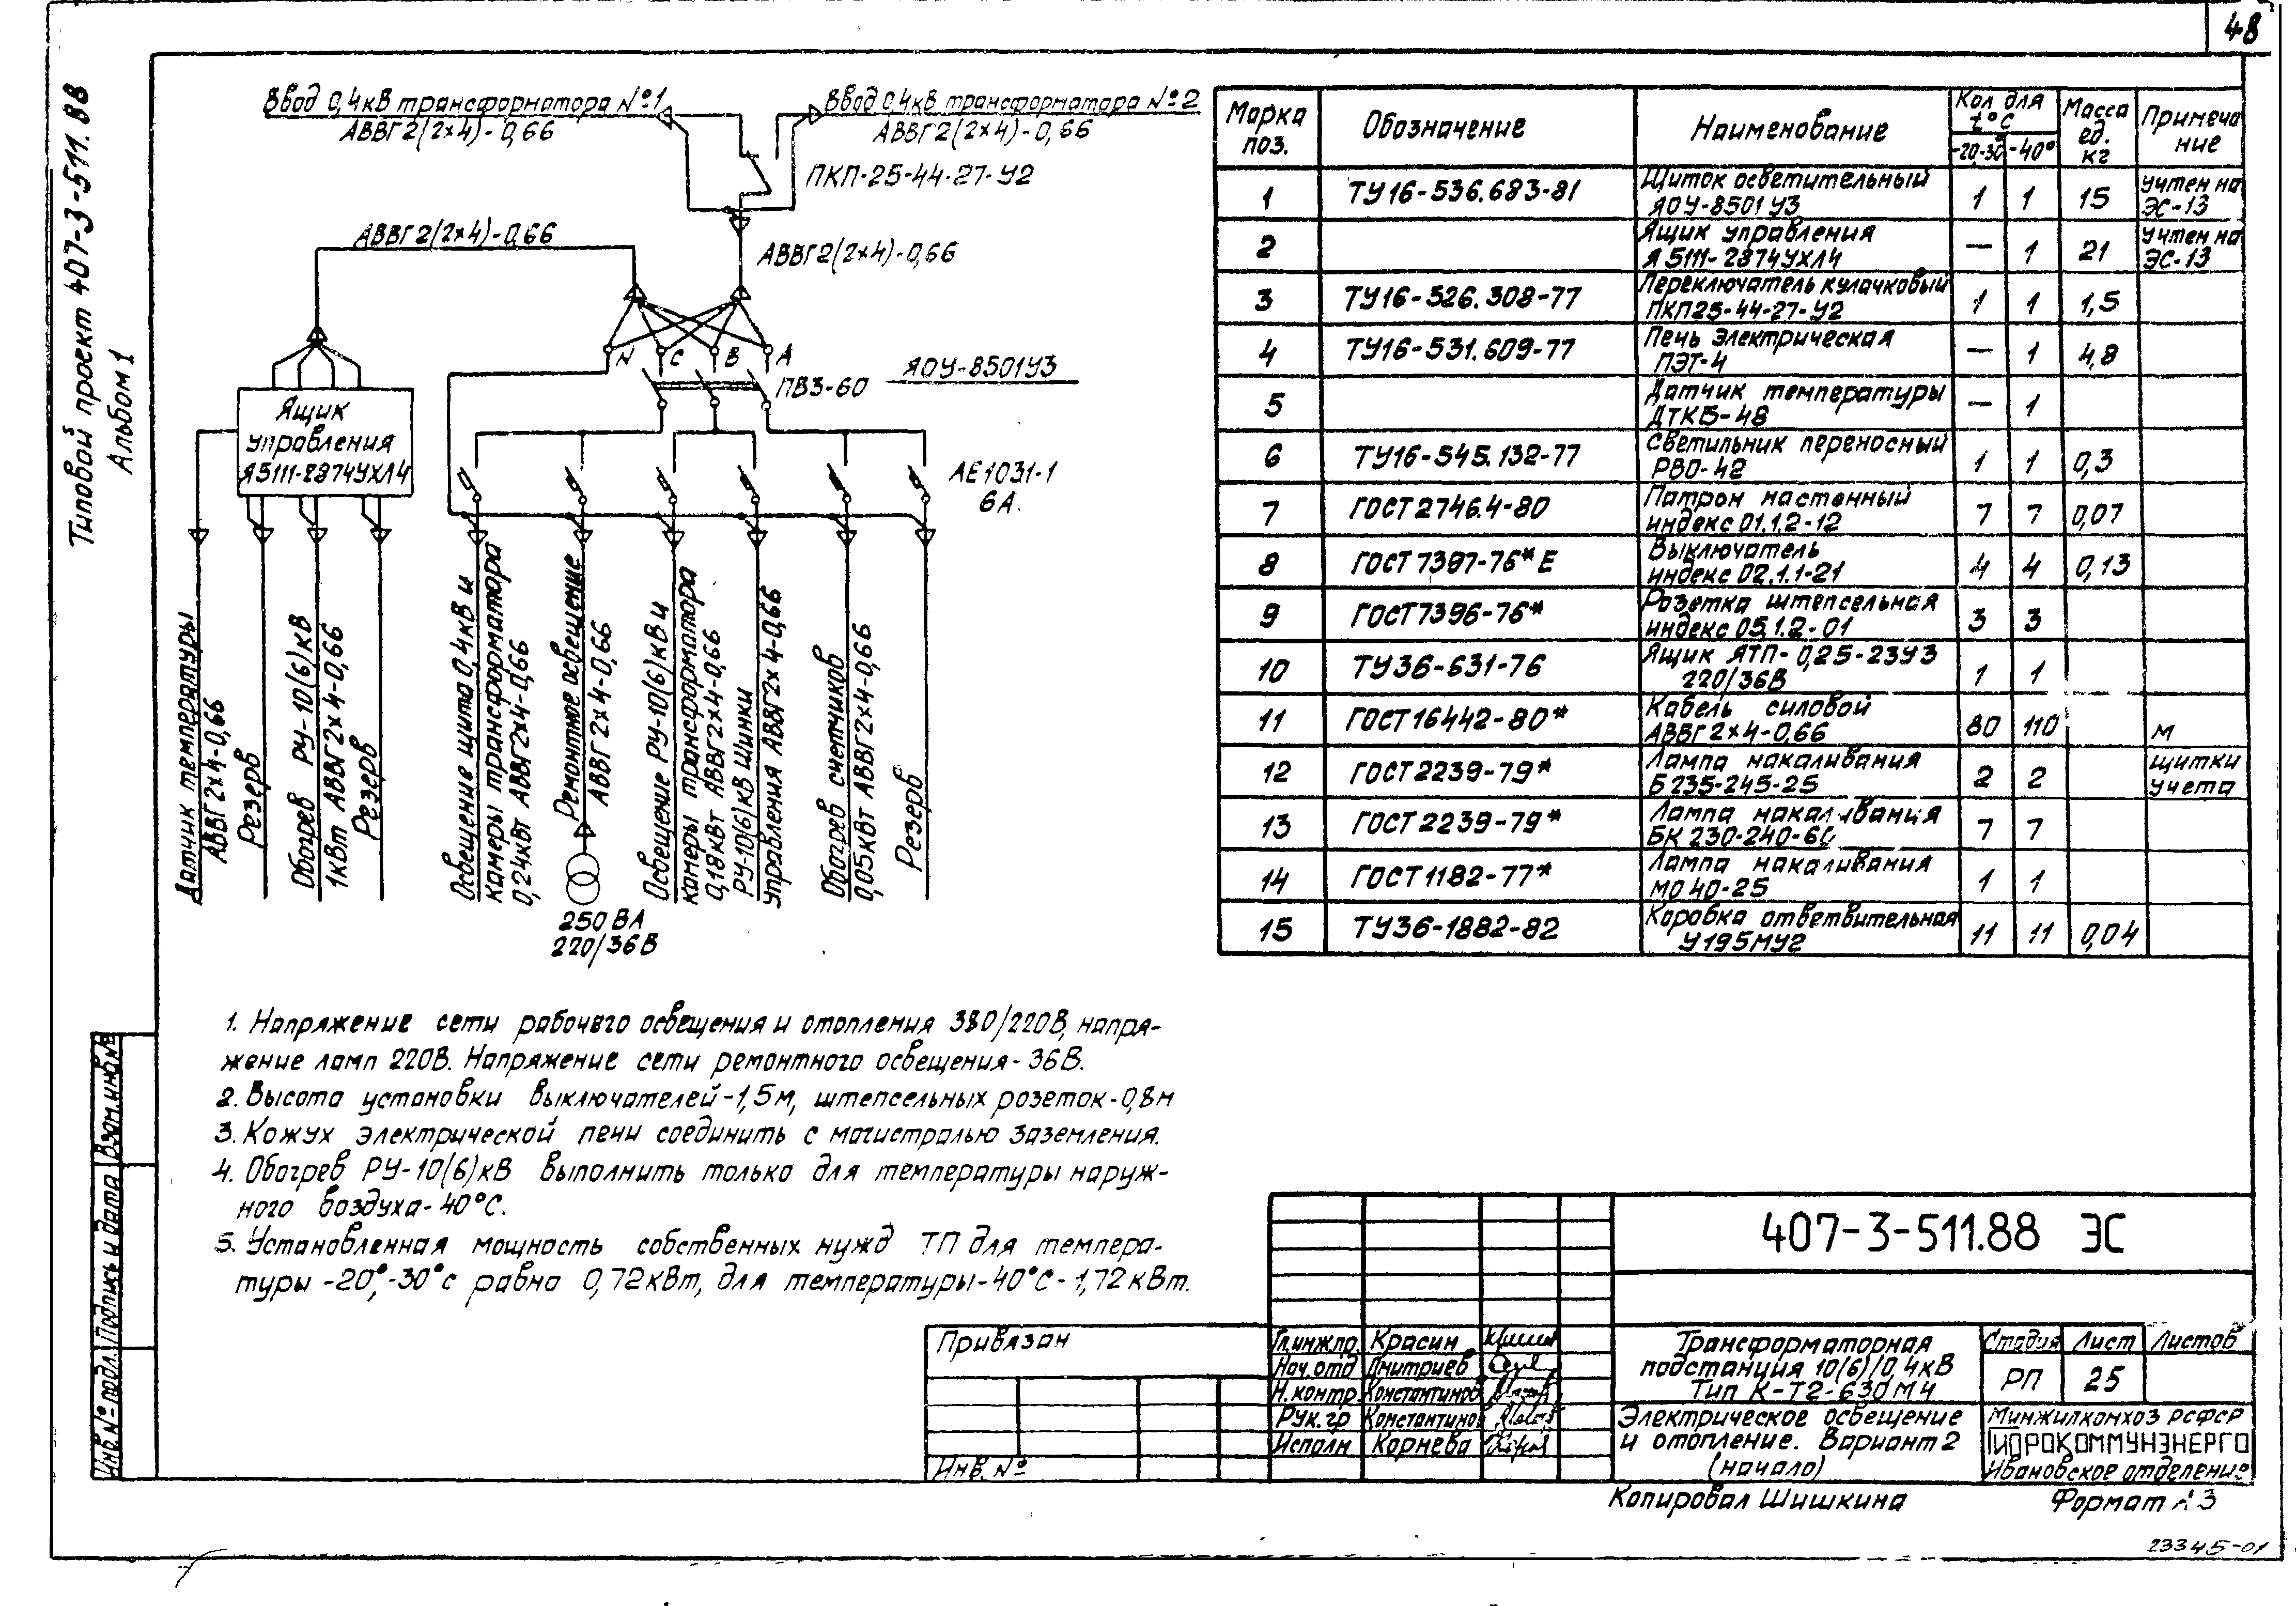 48
Типовой проект 407-3-511.88
Альбом 1
Ввод 0,4кВ трансформатора №1
АВВГ2(2×4)-0,66
Ввод 0,4кВ трансформатора №2
АВВГ2(2×4)-0,66
ПКП-25-44-27-У2
АВВГ2(2×4)-0,66
АВВГ2(2×4)-0,66
N С В А
ЯОУ-8501У3
ПВ3-60
Ящик
управления
Я5111-2874УХЛ4
АЕ1031-1
6А.
Датчик температуры
АВВГ2×4-0,66
Резерв
Обогрев РУ-10(6)кВ
1кВт АВВГ2×4-0,66
Резерв
Освещение щита 0,4кВ и
камеры трансформатора
0,24кВт АВВГ2×4-0,66
Ремонтное освещение
АВВГ2×4-0,66
250ВА
220/36В
Освещение РУ-10(6)кВ и
камеры трансформатора
0,18кВт АВВГ2×4-0,66
РУ-10(6)кВ Шинки
управления АВВГ2×4-0,66
Обогрев счетчиков
0,05кВт АВВГ2×4-0,66
Резерв
Марка поз. Обозначение Наименование Кол. для t°С -20-30 -40° Масса ед. кг Примеча ние
1 ТУ16-536.683-81 Щиток осветительный ЯОУ-8501У3 1 1 15 учтен на ЭС-13
2 Ящик управления Я5111-2874УХЛ4 — 1 21 учтен на ЭС-13
3 ТУ16-526.308-77 Переключатель кулачковый ПКП25-44-27-У2 1 1 1,5
4 ТУ16-531.609-77 Печь электрическая ПЭТ-4 — 1 4,8
5 Датчик температуры ДТКБ-48 — 1
6 ТУ16-545.132-77 Светильник переносный РВО-42 1 1 0,3
7 ГОСТ2746.4-80 Патрон настенный индекс 01.1.2-12 7 7 0,07
8 ГОСТ7397-76*Е Выключатель индекс 02.1.1-21 4 4 0,13
9 ГОСТ7396-76* Розетка штепсельная индекс 05.1.2-01 3 3
10 ТУ36-631-76 Ящик ЯТП-0,25-23У3 220/36В 1 1
11 ГОСТ16442-80* Кабель силовой АВВГ2×4-0,66 80 110 м
12 ГОСТ2239-79* Лампа накаливания Б235-245-25 2 2 щитки учета
13 ГОСТ2239-79* Лампа накаливания БК230-240-60 7 7
14 ГОСТ1182-77* Лампа накаливания МО40-25 1 1
15 ТУ36-1882-82 Коробка ответвительная У195МУ2 11 11 0,04
1. Напряжение сети рабочего освещения и отопления 380/220В, напря-
жение ламп 220В. Напряжение сети ремонтного освещения-36В.
2. Высота установки выключателей-1,5м, штепсельных розеток-0,8м
3. Кожух электрической печи соединить с магистралью заземления.
4. Обогрев РУ-10(6)кВ выполнить только для температуры наруж-
ного воздуха-40°С.
5. Установленная мощность собственных нужд ТП для темпера-
туры -20°,-30°С равна 0,72кВт, для температуры-40°С-1,72кВт.
Инв.№ подл. Подпись и дата Взам.инв№
Привязан
Инв. №
407-3-511.88 ЭС
Гл.инж.пр. Красин
Нач.отд Дмитриев
Н.контр. Константинов
Рук.гр Константинов
Исполн Корнева
Трансформаторная
подстанция 10(6)/0,4кВ
Тип К-Т2-630М4
Стадия Лист Листов
РП 25
Электрическое освещение
и отопление. Вариант 2
(начало)
Минжилкомхоз РСФСР
ГИПРОКОММУНЭНЕРГО
Ивановское отделение
Копировал Шишкина
Формат А3
23345-01